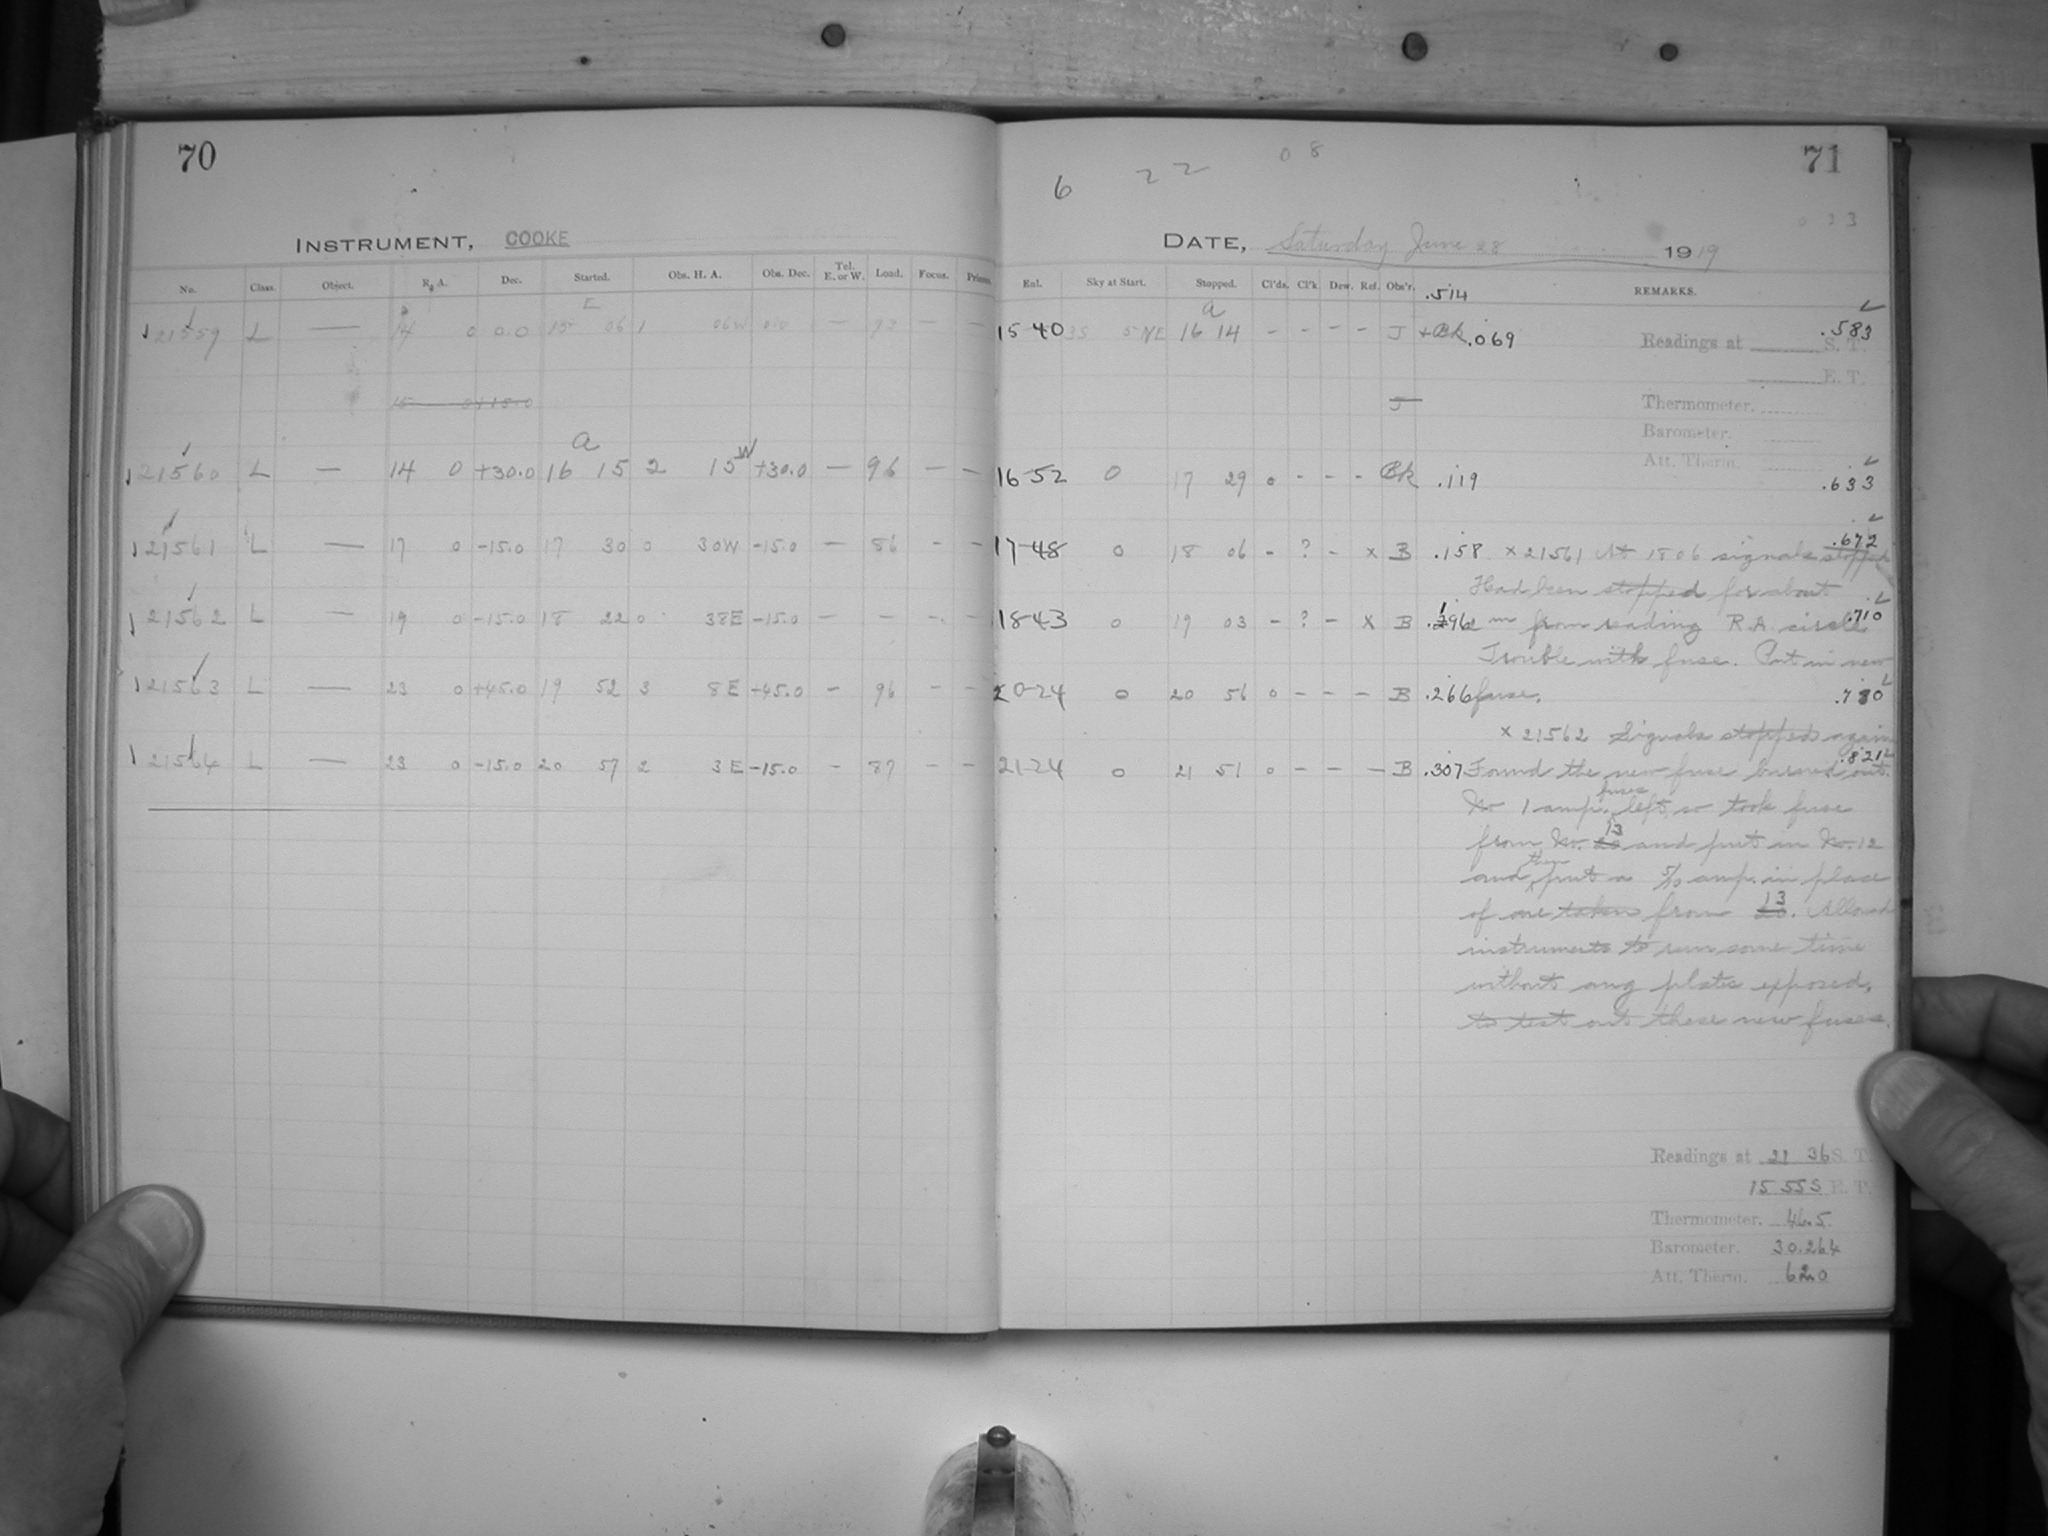 70
INSTRUMENT, COOKE
No. Class. Object. R. A. Dec. Started. Obs. H. A. Obs. Dec. Tel. E. or W. Load. Focus.
E
21559 L — 14 0 0.0 15 06 1 06W 0.0 — 93 — —
a
21560 L — 14 0 +30.0 16 15 2 15W +30.0 — 96 — —
21561 L — 17 0 -15.0 17 30 0 30W -15.0 — 86 — —
21562 L — 19 0 -15.0 18 22 0 38E -15.0 — — — —
21563 L — 23 0 +45.0 19 52 3 8E +45.0 — 96 — —
21564 L — 23 0 -15.0 20 57 2 3E -15.0 — 87 — —
71
6 22 08
023
DATE, Saturday June 28 1919
Eal. Sky at Start. Stopped. Cl'ds. Cl'k Dew. Ref. Obs'r. .514 REMARKS.
a
15-40 3S 5NE 16 14 - - - - J + Bk .069 .583
Readings at S. T.
E. T.
J
Thermometer.
Barometer.
Att. Therm.
16-52 0 17 29 0 - - - Bk .119 .633
17-48 0 18 06 - ? - x B .158 x 21561 At 1806 signals stopped .672
Had been stopped for about
18-43 0 19 03 - ? - x B .196 2 m from reading R.A. circle .710
Trouble with fuse. Put in new
20-24 0 20 56 0 - - - B .266 fuse. .780
x 21562 Signals stopped again
21-24 0 21 51 0 - - - B .307 Found the new fuse burned out. .821
No 1 amp. fuses left, so took fuse
from No. 13 and put in No. 12
and then put a 5/10 amp. in place
of one taken from 13. Allowed
instruments to run some time
without any plates exposed,
to test out these new fuses.
Readings at 21 36 S. T.
15 55 S E. T.
Thermometer. 46.5
Barometer. 30.264
Att. Therm. 62.0